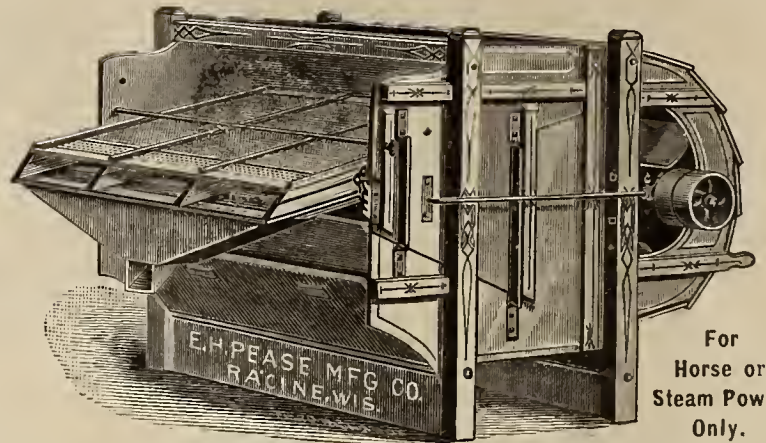 E.H. PEASE MFG CO.
RACINE, WIS.
For
Horse or
Steam Pow
Only.